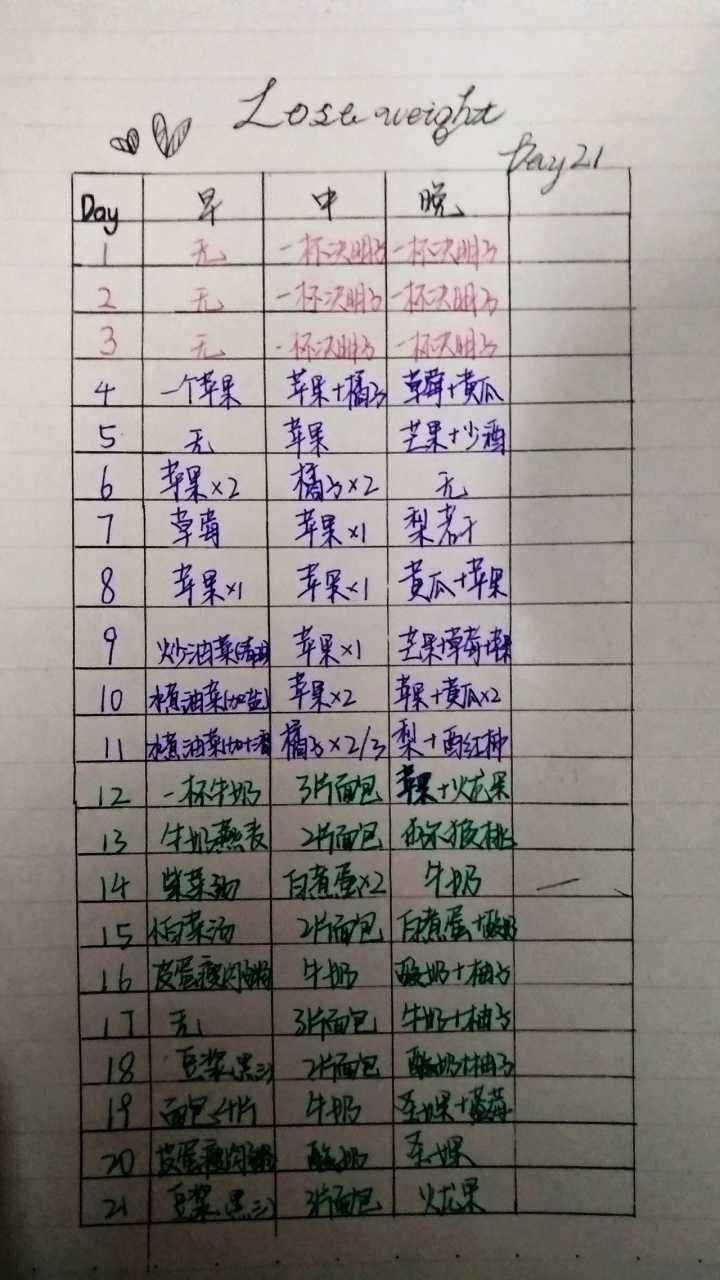 Lose weight
Day 21
Day 早 中 晚
1 无 一杯决明子 一杯决明子
2 无 一杯决明子 一杯决明子
3 无 一杯决明子 一杯决明子
4 一个苹果 苹果+橘子 草莓+黄瓜
5 无 苹果 芒果+少酒
6 苹果×2 橘子×2 无
7 草莓 苹果×1 梨若干
8 苹果×1 苹果×1 黄瓜+苹果
9 炒油菜 苹果×1 芒果+草莓+苹果
10 水煮油菜(加盐) 苹果×2 苹果+黄瓜×2
11 水煮油菜(加 橘子×2/3 梨+西红柿
12 一杯牛奶 3片面包 苹果+火龙果
13 牛奶燕麦 2片面包 猕猴桃
14 紫菜汤 白煮蛋×2 牛奶
15 白菜汤 2片面包 白煮蛋+酸奶
16 皮蛋瘦肉粥 牛奶 酸奶+柚子
17 无 3片面包 牛奶+柚子
18 豆浆(黑豆) 2片面包 酸奶+柚子
19 面包 片 牛奶 圣女果+蓝莓
20 皮蛋瘦肉粥 酸奶 圣女果
21 豆浆(黑豆) 3片面包 火龙果